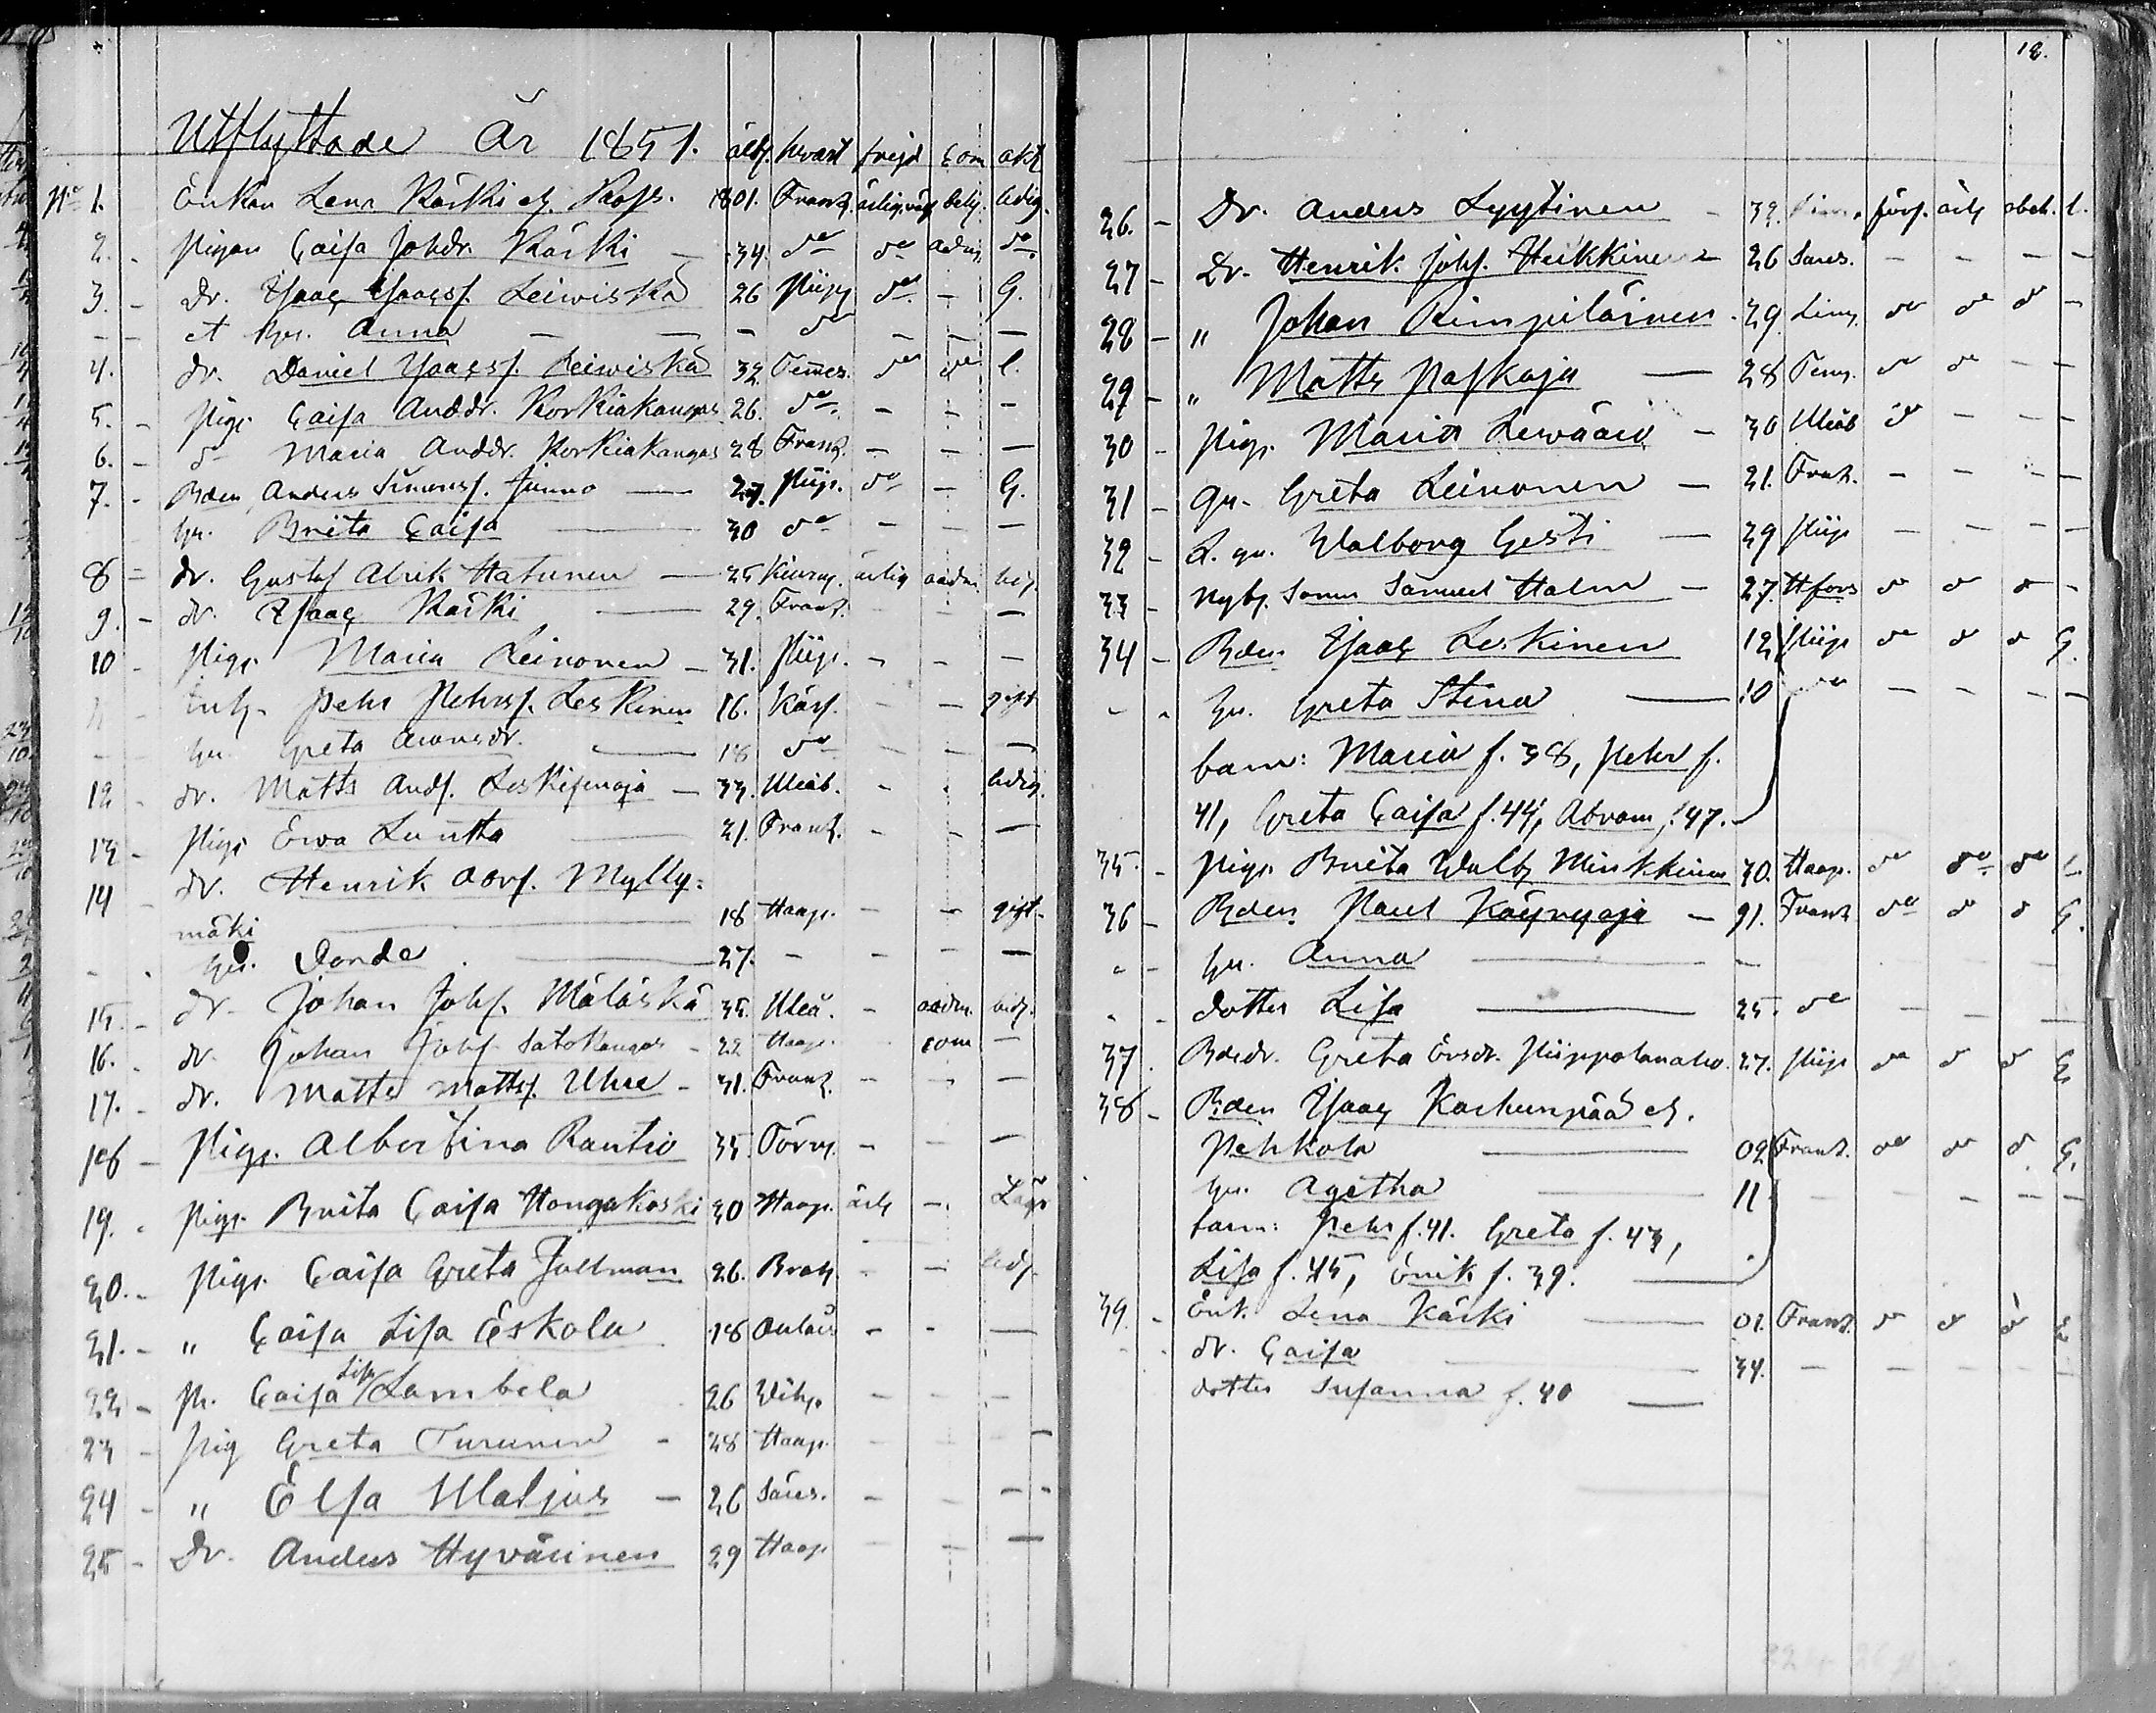 Utflyttade År 1851. åld. hvart frejd Com akt
No 1. Enkan Lena Kärki 1801. Frantz. ärlig bety. ledig.
2. Pigan Caisa Johdr. Kärki 34 do do do
3. Dr. Isaac Isaacsf. Leiwiskä 26 Piip do - G.
et hu. Anna - - do - - -
4. dr. Daniel Isaacsf. Leiwiskä 32 Temmes. do do l.
5. Pig. Caisa Anddr. Korkiakangas 26. do - - -
6. d Maria Anddr. Korkiakangas 28 Frantz. - - -
7. Bden Anders Simonsf. Junno 27. Piip. do - G.
hu. Brita Caisa 30 do - - -
8 dr. Gustaf Alrik Hatunen 25 ärlig
9. dr. Isaac Kärki 29. Frantz. -
10 Pig. Maria Leinonen 31. Piip. - - -
Pehr Pehrsf. Leskinen 16. Kärs. - - gift
hu. Greta Aronsdr. 18 do - - -
12 dr. Matts Andf. Leskisenoja 33. Uleåb. - - ledig.
13 Pig. Ewa Luutta 21. Frantz. - - -
14 dr. Henrik Abrf. Mylly:
mäki 18 Haap. - - gift.
hu. Donda 27. - - - -
15. dr. Johan Johf. Mäläskä 35. Uleå. -
16. dr. Johan Johf. Satokangas 22 Haap. com -
17. dr. Matts Mattsf. Uhre 31. Frantz. - - -
18 Pig. Albertina Rantio 35. - - -
19. Pig. Brita Caisa Hongakoski 30 Haap. ärl -
20. Pig. Caisa Greta Jullman 26. Brah. - - led.
21. " Caisa Lisa Eskola 18 - - -
22 P. Caisa Lisa Lambela 26 Wih. - - -
23 Pig Greta Turunen 28 Haap. -
24 " Elsa Maljus 26 Säres. - - -
25 Dr. Anders Hyvärinen 29 Haap - - -
12.
26. Dr. Anders Lyytinen 32. ärl l.
27 Dr. Henrik Johf. Heikkinen 26 Säres. - - - -
28 " Johan Rimpiläinen 29. Lim. do do do -
29 " Matts Paskoja 28 Tem. do do - -
30 Pig. Maria Lewääri 30 Uleåb do - - -
31 qu. Greta Leinonen 21. Frantz. - - - -
32 qu. Walborg Gesti 29 Piip - - - -
33 Nyb. Sonen Samuel Halm 27. Hfors do do do -
34 Bden Isaac Leskinen 12 Piip do do do G.
hu. Greta Stina 10 do - - - -
barn: Maria f. 38, Pehr f.
41, Greta Caisa f. 44, Abram f. 47.
35. Pig. Brita Walb. Minkkinen 30. Haap. do do do
36 Bden Paul Käyryoja 91. Frantz do do do G.
hu. Anna
dotter Lisa 25. do - - -
37. Bdedr. Greta Ersdr. Piippolanaho 27. Piip do do do
38 Bden Isaac Karhunpää
Pehkola 09 Frantz. do do do G.
hu. Agetha 11 - - - -
barn: Pehr f. 41. Greta f. 43,
Lisa f. 45, Erik f. 39.
39. Enk. Lena Kärki 01. Frantz. do do do
dr. Caisa 34. - - -
dotter Susanna f. 40